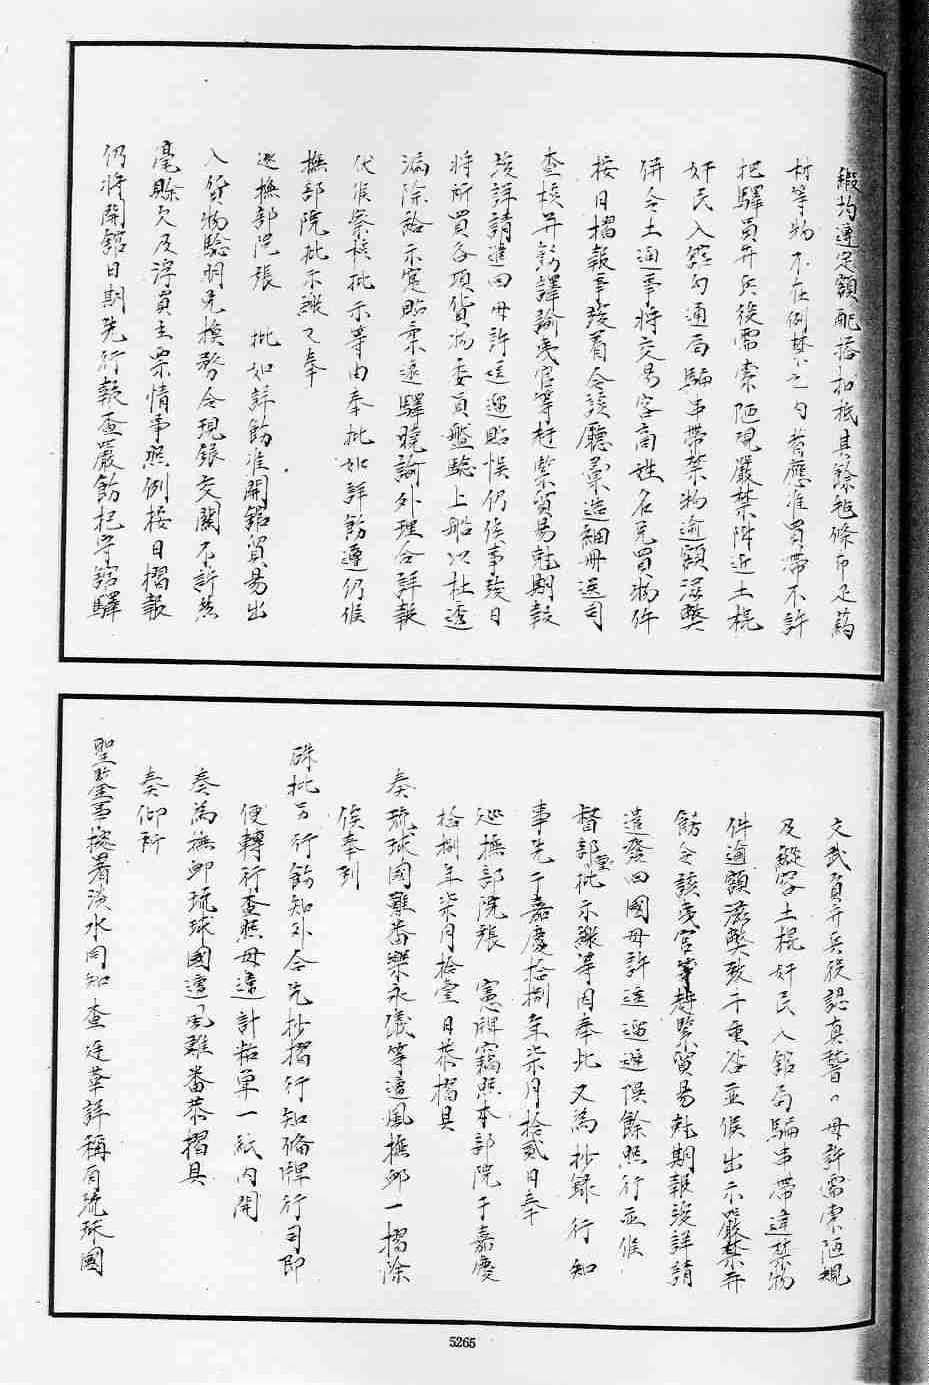 緞均遵定額配搭扣抵其餘毡條布疋藥
材等物不在例禁之內者應准買帶不許
把驛員弁兵役需索陋規嚴禁附近土棍
奸民入館勾通局騙串帶禁物逾額滋弊
併令土通事將交易客商姓名兌買物件
按日摺報事竣着令該廳彙造細冊送司
查核并飭譯諭夷官等赶緊貿易尅期報
竣詳請遣回毋許逗遛貽悞仍俟事竣日
將所買各項貨物委員盤驗上船以杜透
漏除給示寔貼柔遠驛曉諭外理合詳報
伏候察核批示等由奉批如詳飭遵仍候
撫部院批示繳又奉
巡撫部院張 批如詳飭准開館貿易出
入貨物驗明兌換務令現銀交關不許其
毫賒欠及浮員主票情事照例按日摺報
仍將開館日期先行報查嚴飭把守館驛
文武員弁兵役認真稽查毋許需索陋規
及縱容土棍奸民入館局騙串帶違禁物
件逾額滋弊致干重咎並候出示嚴禁并
飭令該夷官等赶緊貿易尅期報竣詳請
遣發回國毋許逗遛遲悞餘照行並候
督部堂批示繳等因奉此又為抄錄行知
事先于嘉慶拾捌年柒月拾貳日奉
巡撫部院張 憲牌竊照本部院于嘉慶
拾捌年柒月拾壹日恭摺具
奏琉球國難番樂永儀等遭風撫卹一摺除
俟奉到
硃批另行飭知外合先抄摺行知備牌行司即
便轉行查照毋違計粘單一紙內開
奏為撫卹琉球國遭風難番恭摺具
奏仰祈
聖鑒事據署淡水同知查廷華詳稱有琉球國
5265